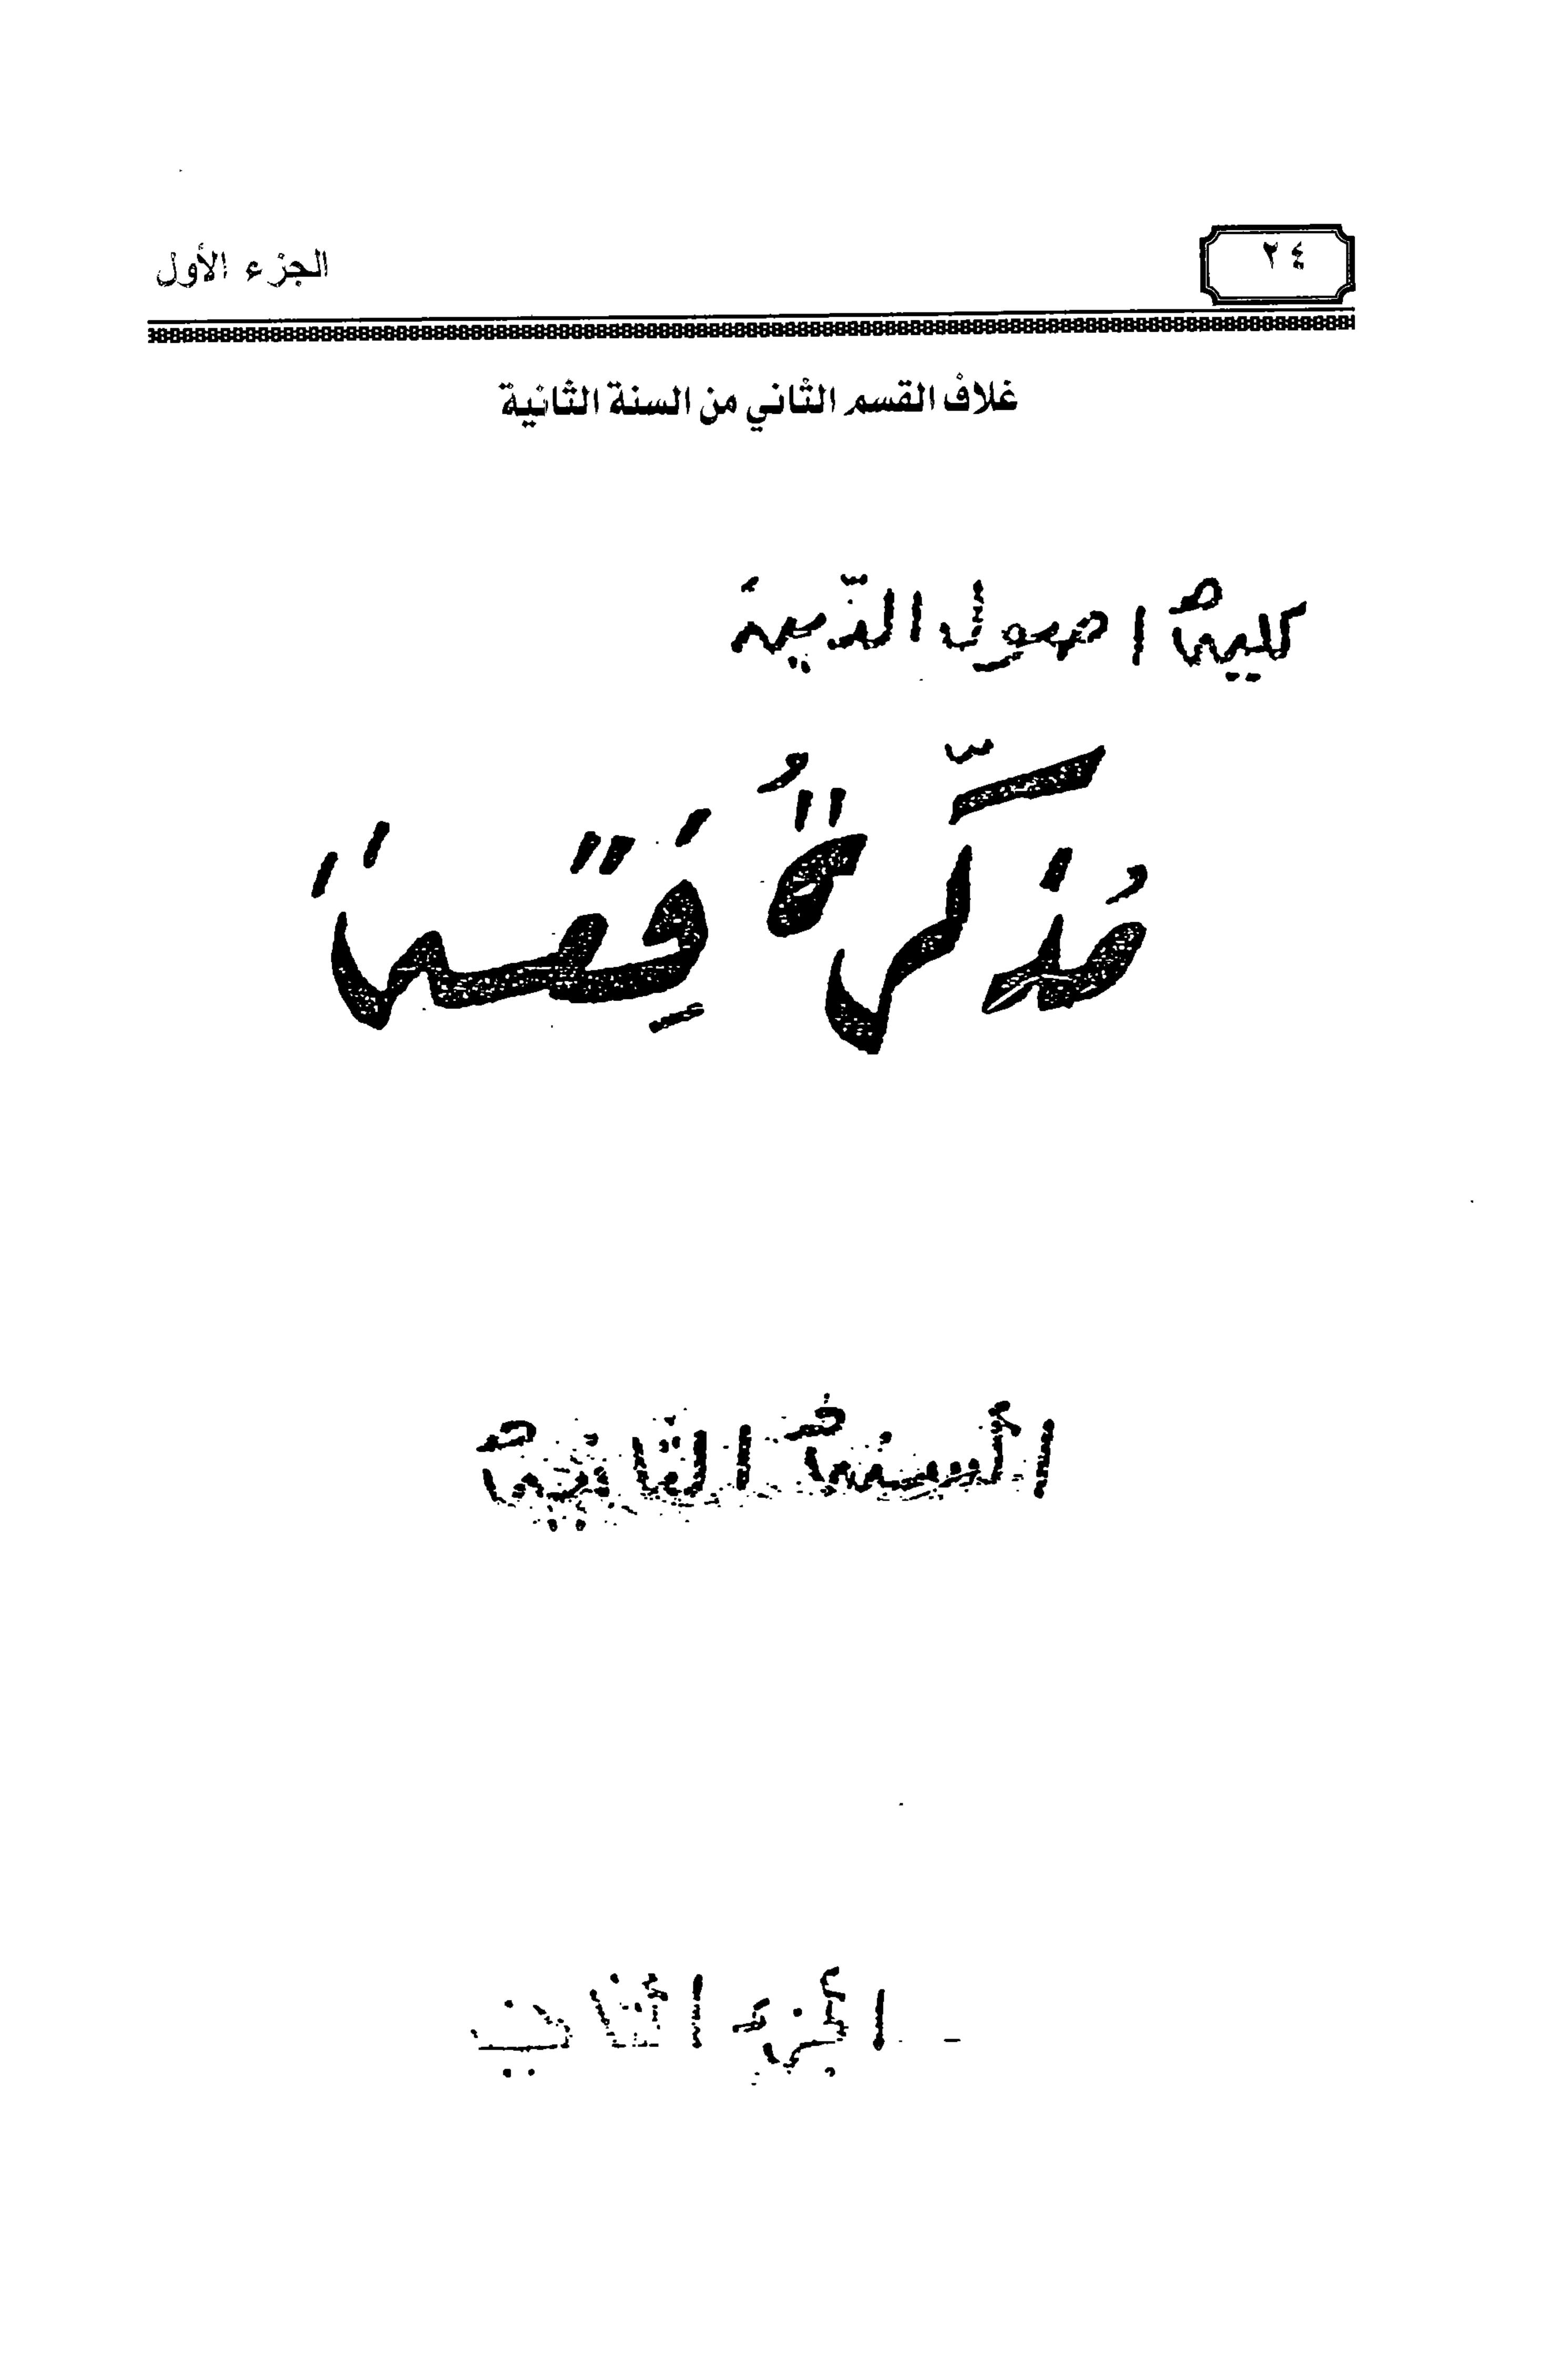 ٢٤ الجزء الأول
غلاف القسم الثاني من السنة الثانية
كلية اصول الدّين
مُذكّرةُ فِقه
السنة الثانية
الجزء الثاني